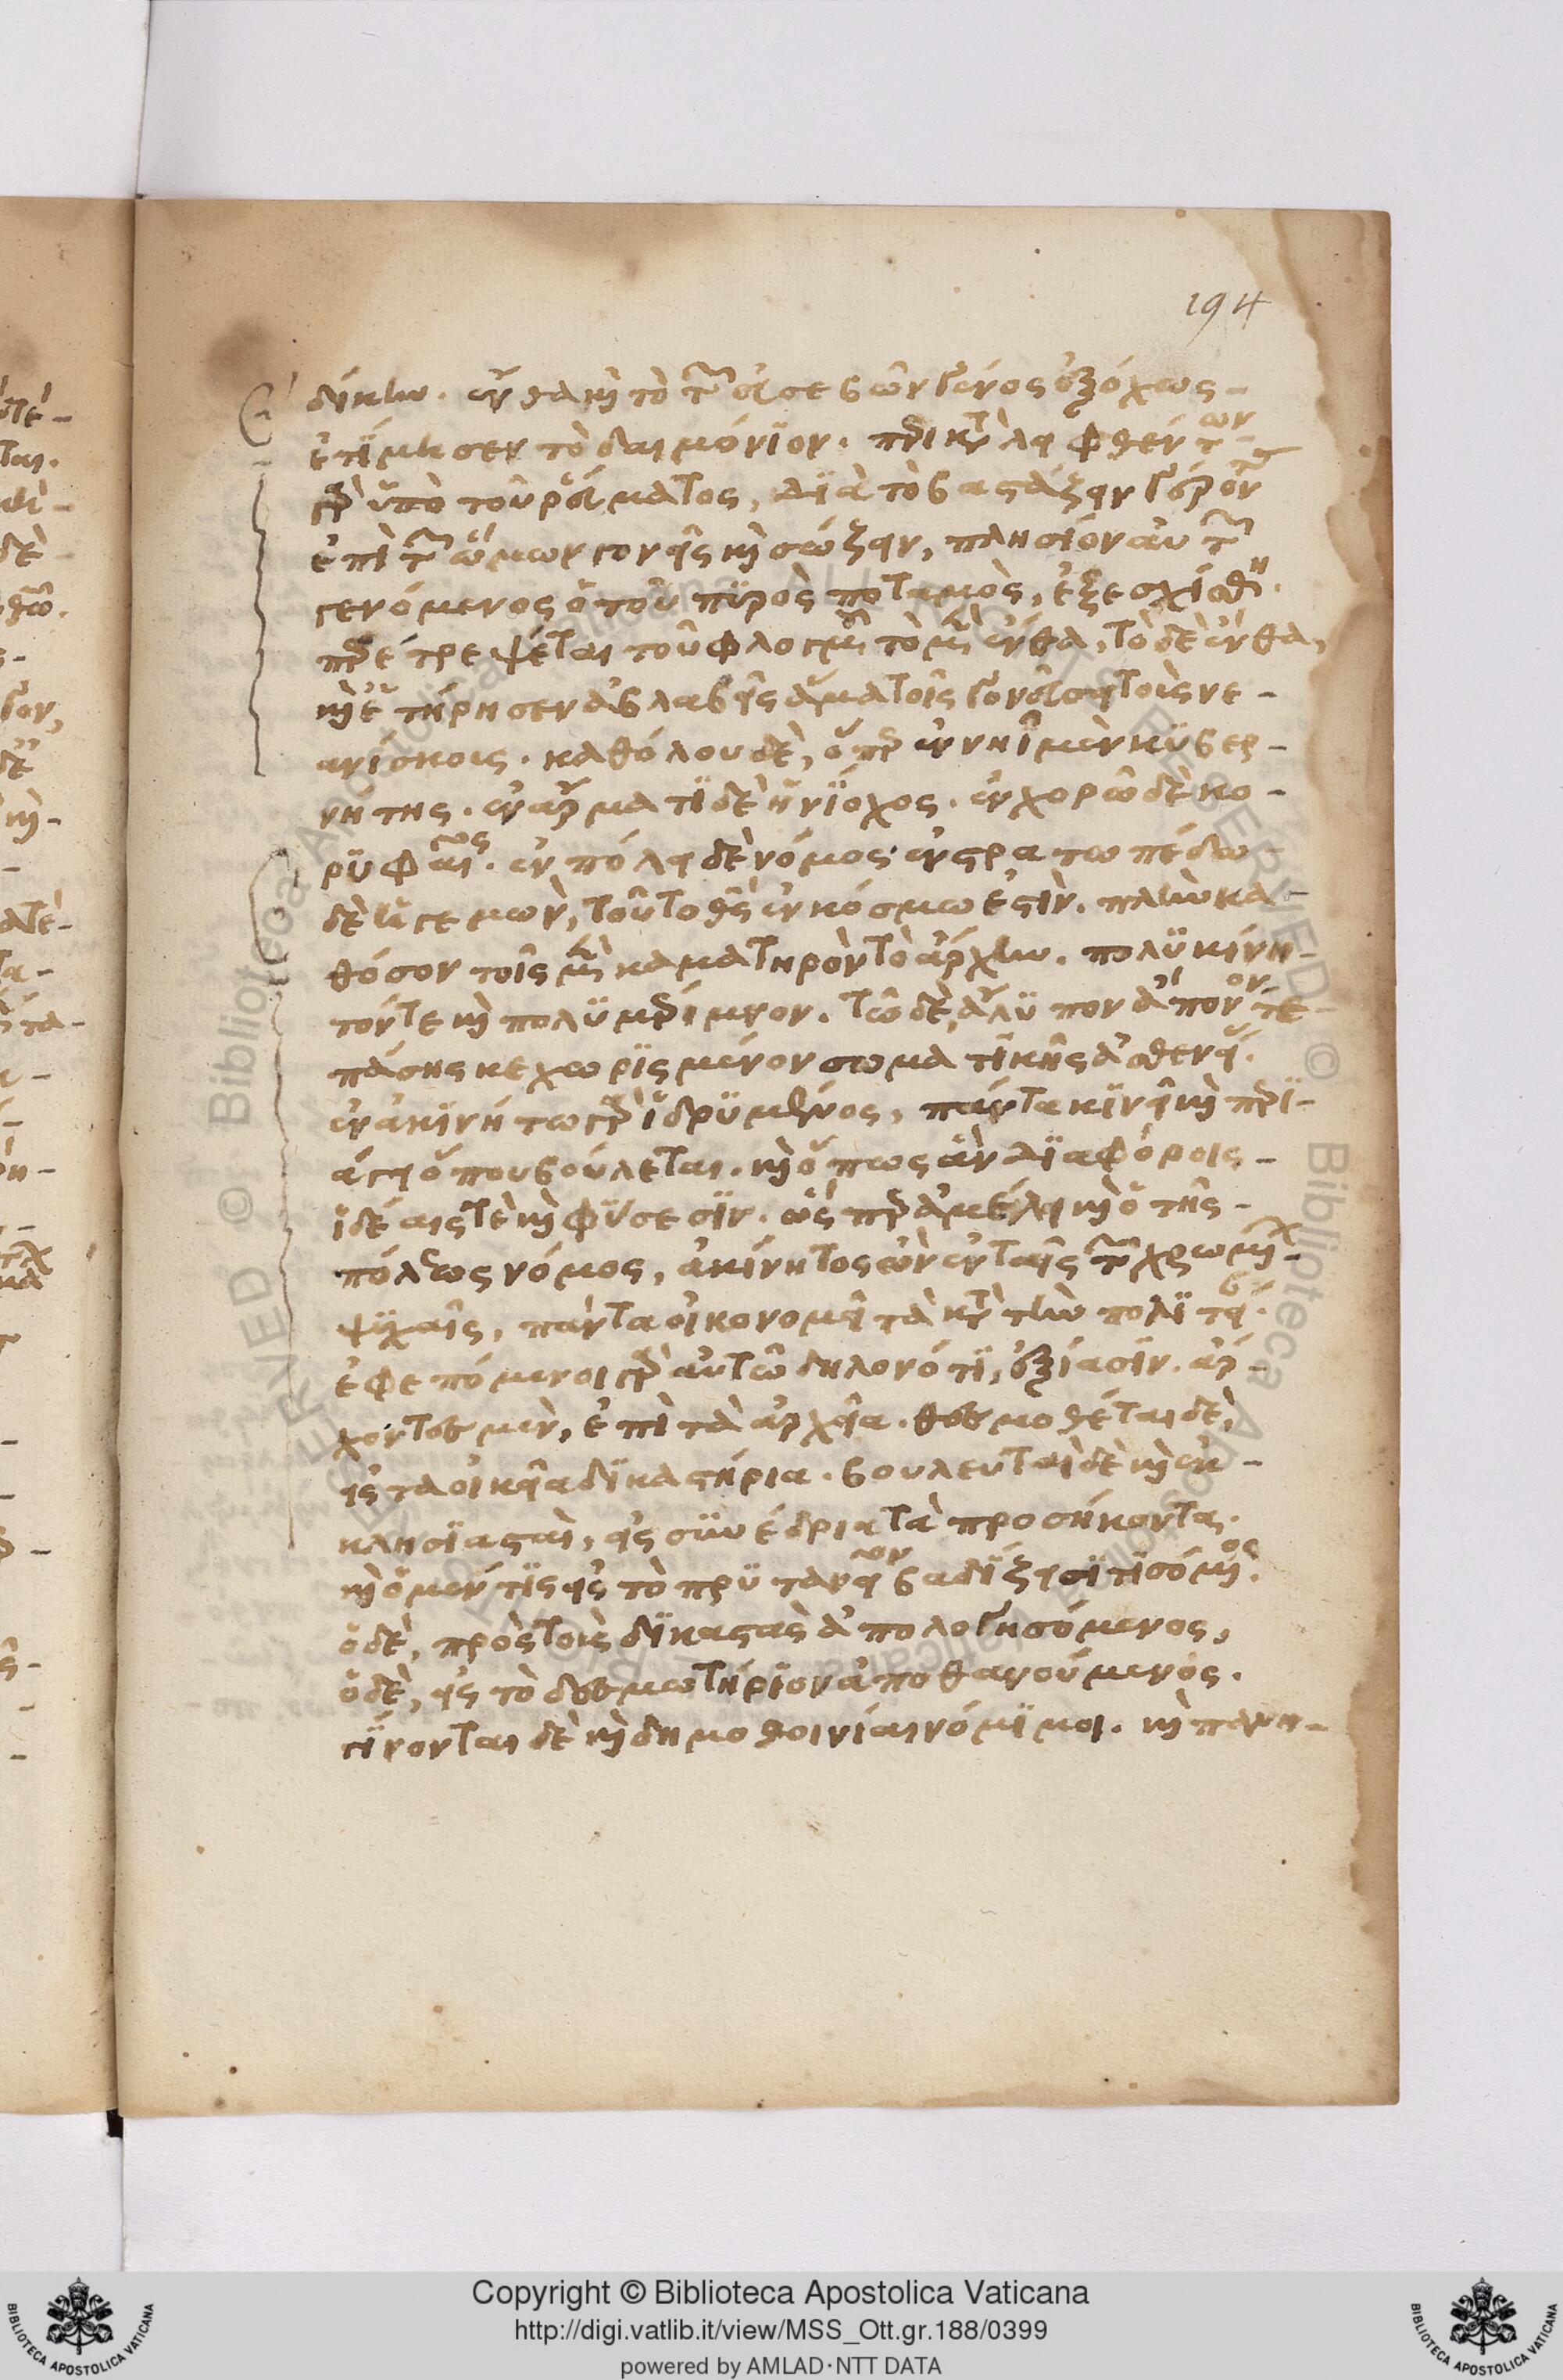 194
δίκην. ἔνθα καὶ τὸ τῶν εὐσεβῶν γένος ἐξόχως -
ἐτίμησεν τὸ δαιμόνιον. περικαταληφθέντων
γὰρ ὑπὸ τοῦ ῥεύματος, διὰ τὸ βαστάζειν γέροντας
ἐπὶ τῶν ὤμων γονεῖς καὶ σώζειν, πλησίον αὐτῶν
γενόμενος ὁ τοῦ πυρὸς ποταμὸς, ἐξεσχίσθη.
παρέτρεψέ τε τοῦ φλογμοῦ τὸ μὲν ἔνθα, τὸ δὲ ἔνθα,
καὶ ἐτήρησεν ἀβλαβεῖς ἅμα τοῖς γονεῦσι τοὺς νε -
ανίσκους. καθόλου δὲ, ὅπερ ἐν νηῒ μὲν κυβερ -
νήτης. ἐν ἅρματι δὲ ἡνίοχος. ἐν χορῶ δὲ κο -
ρυφαῖος. ἐν πόλει δὲ νόμος· ἐν στρατωπέδω
δὲ ἡγεμὼν, τοῦτο θεὸς ἐν κόσμω ἐστὶν. πλὴν κα -
θόσον τοῖς μὲν καματηρὸν τὸ ἄρχειν. πολυκίνη -
τόν τε καὶ πολυμέριμνον. τῶ δὲ, ἄλυπον ἄπονόν τε
πάσης κεχωρισμένον σωματικῆς ἀσθενείας.
ἐν ἀκινήτω γὰρ ἱδρυμένος, πάντα κινεῖ καὶ περι -
άγει ὅπου βούλεται. καὶ ὅπως ἐν διαφόροις -
ἰδέαις τὲ καὶ φύσεσιν. ὥσπερ ἀμέλει καὶ ὁ τῆς -
πόλεως νόμος, ἀκίνητος ὢν ἐν ταῖς τῶν χρωμένων
ψυχαῖς, πάντα οἰκονομεῖ τὰ κατὰ τὴν πολιτείαν.
ἐφεπόμενοι γὰρ αὐτῶ δηλονότι, ἐξίασιν. ἄρ -
χοντες μὲν, ἐπὶ τὰ ἀρχεῖα. θεσμοθέται δὲ,
εἰς τὰ οἰκεῖα δικαστήρια. βουλευταὶ δὲ καὶ ἐκ -
κλησιασταὶ, εἰς συνέδρια τὰ προσήκοντα.
καὶ ὁ μέν τις εἰς τὸ πρυτανεῖον βαδίζει σιτισόμενος.
ὁ δὲ, πρὸς τοὺς δικαστὰς ἀπολογησόμενος,
ὁ δὲ, εἰς τὸ δεσμωτήριον ἀποθανούμενος.
γίνονται δὲ καὶ δημοθοινίαι νόμιμοι. καὶ πανη -
Copyright © Biblioteca Apostolica Vaticana
http://digi.vatlib.it/view/MSS_Ott.gr.188/0399
powered by AMLAD·NTT DATA
BIBLIOTECA APOSTOLICA VATICANA
BIBLIOTECA APOSTOLICA VATICANA